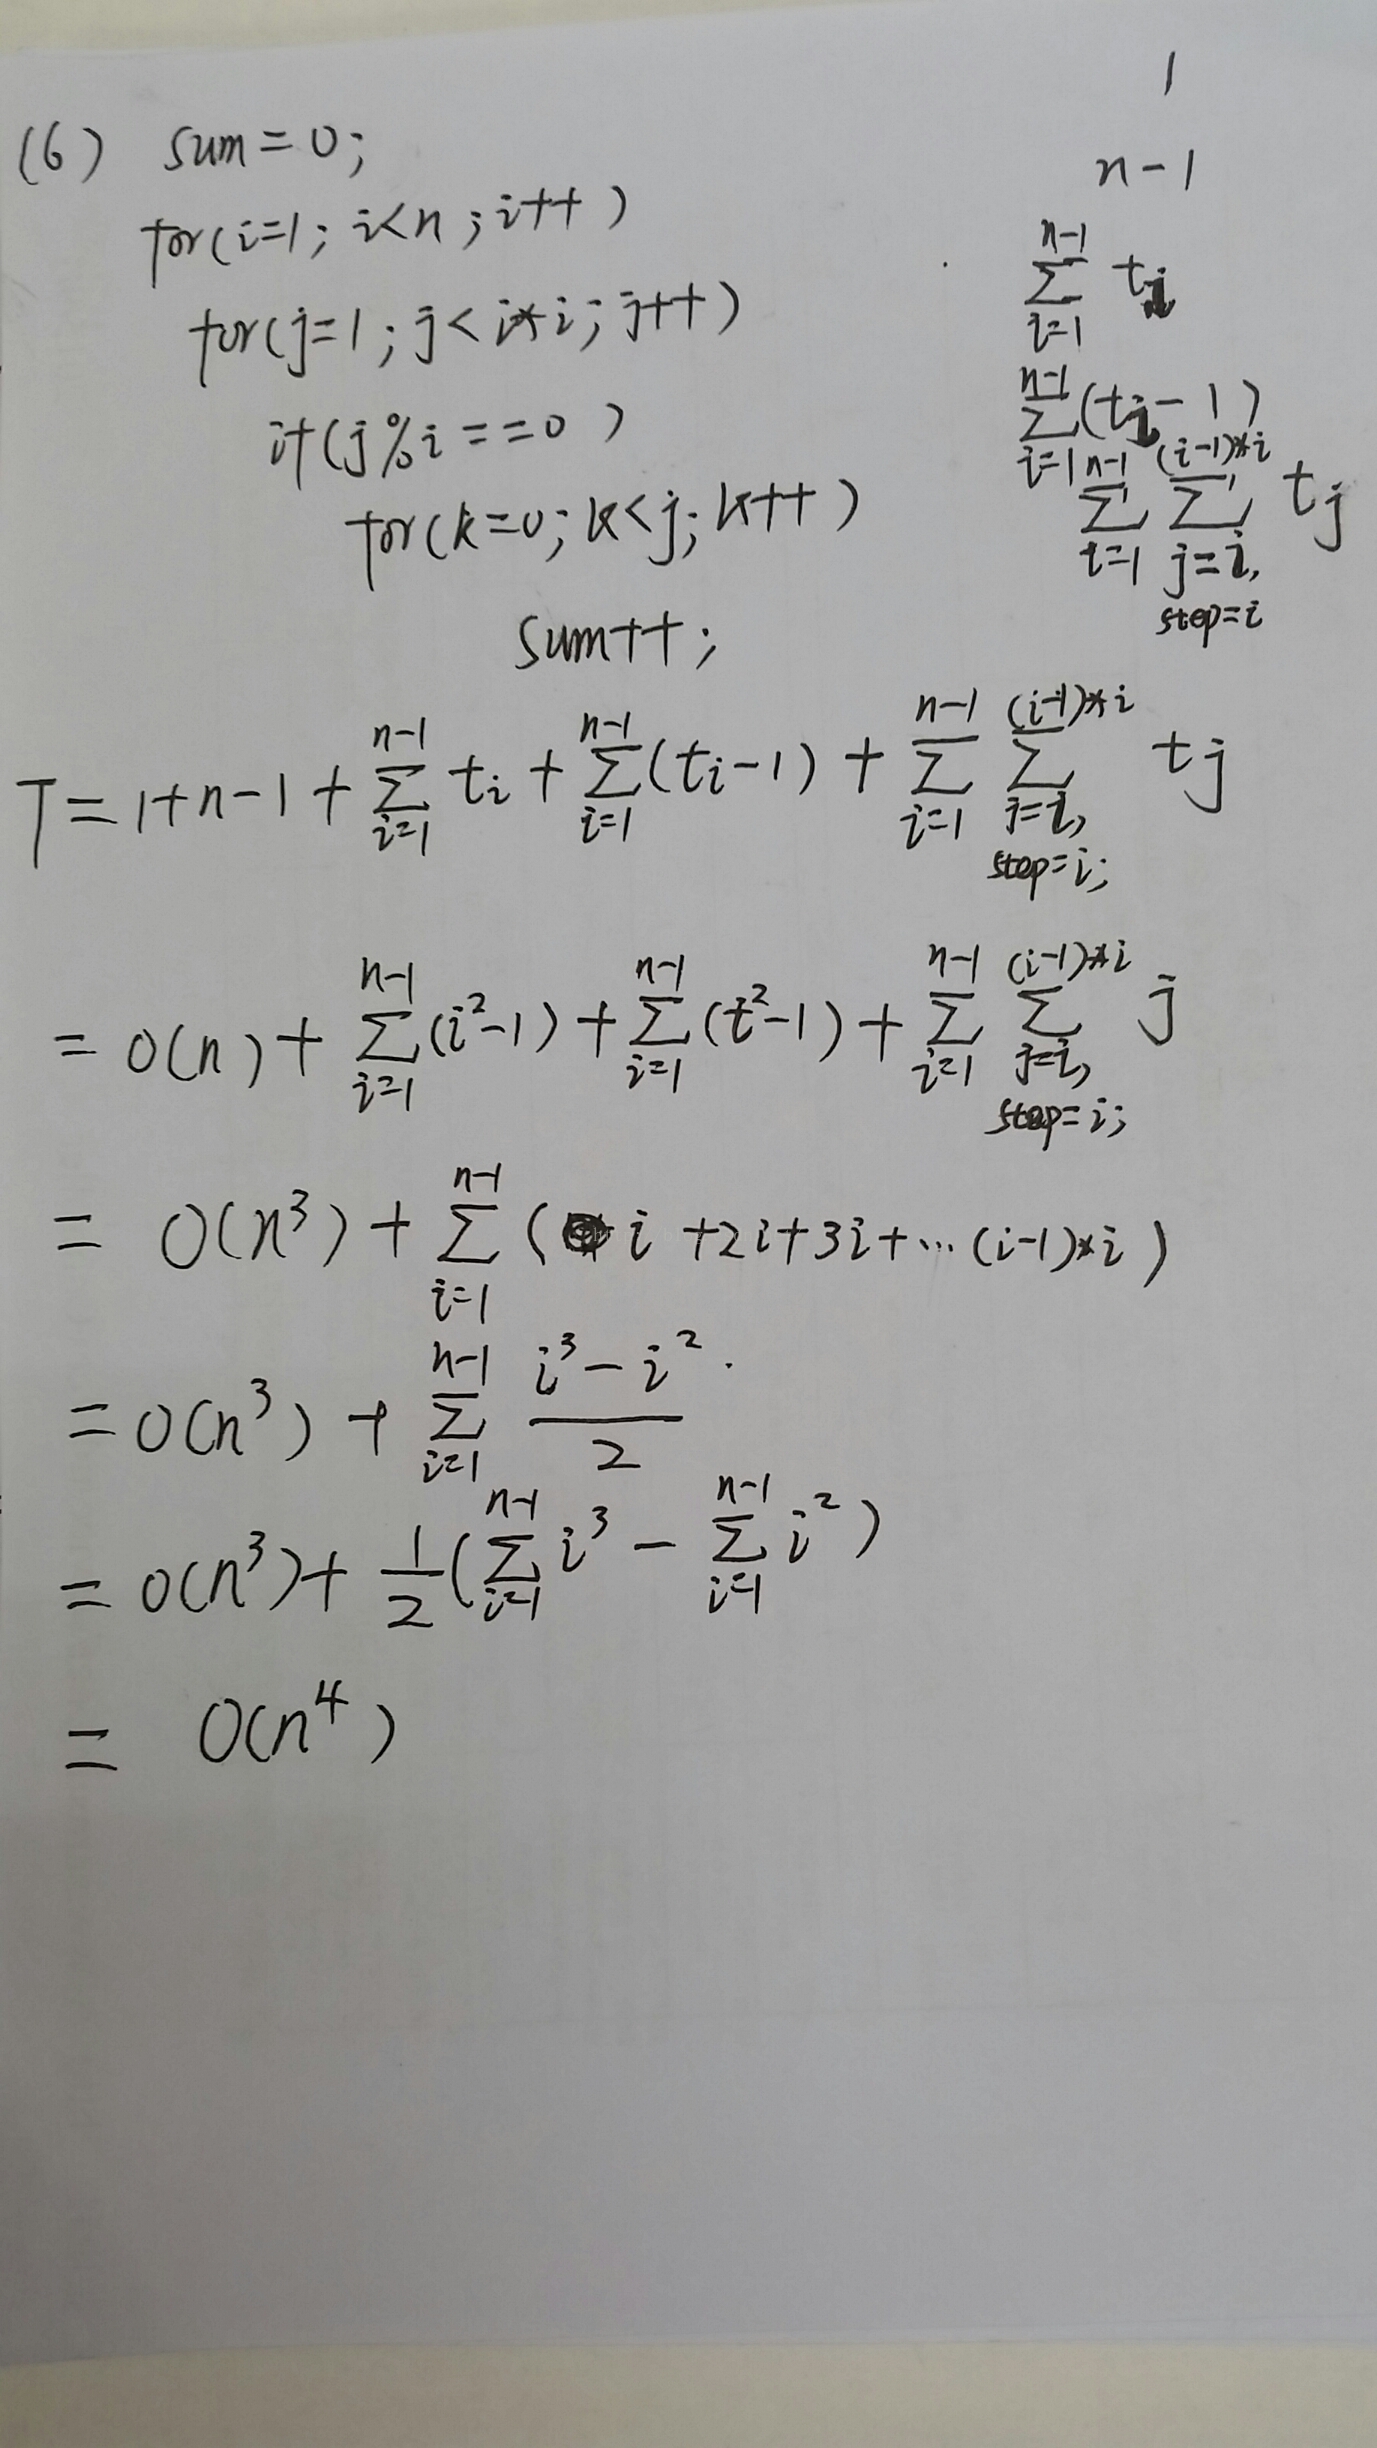 1
(6) sum=0;
n-1
for(i=1; i<n; i++)
\sum_{i=1}^{n-1} t_i
for(j=1; j<i*i; j++)
\sum_{i=1}^{n-1} (t_i-1)
if(j%i==0)
\sum_{i=1}^{n-1} \sum_{j=i, step=i}^{(i-1)*i} t_j
for(k=0; k<j; k++)
sum++;
T=1+n-1+\sum_{i=1}^{n-1} t_i+\sum_{i=1}^{n-1} (t_i-1)+\sum_{i=1}^{n-1} \sum_{j=i, step=i;}^{(i-1)*i} t_j
=O(n)+\sum_{i=1}^{n-1} (i^2-1)+\sum_{i=1}^{n-1} (t^2-1)+\sum_{i=1}^{n-1} \sum_{j=i, step=i;}^{(i-1)*i} j
=O(n^3)+\sum_{i=1}^{n-1} (i+2i+3i+...(i-1)*i)
=O(n^3)+\sum_{i=1}^{n-1} \frac{i^3-i^2}{2}.
=O(n^3)+\frac{1}{2}(\sum_{i=1}^{n-1} i^3-\sum_{i=1}^{n-1} i^2)
=O(n^4)